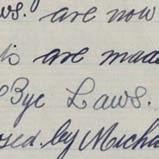 ws. are now
are made
Bye Laws.
osed by Micha